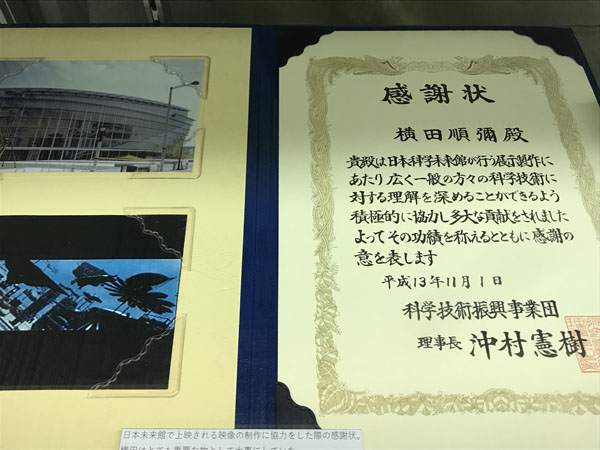 感謝状
横田順彌殿
貴殿は日本科学未来館が行う展示製作に
あたり広く一般の方々の科学技術に
対する理解を深めることができるよう
積極的に協力し多大な貢献をされました
よってその功績を称えるとともに感謝の
意を表します
平成13年11月1日
科学技術振興事業団
理事長 沖村憲樹
日本未来館で上映される映像の制作に協力をした際の感謝状。
横田はとても重要な物として大事にしていた